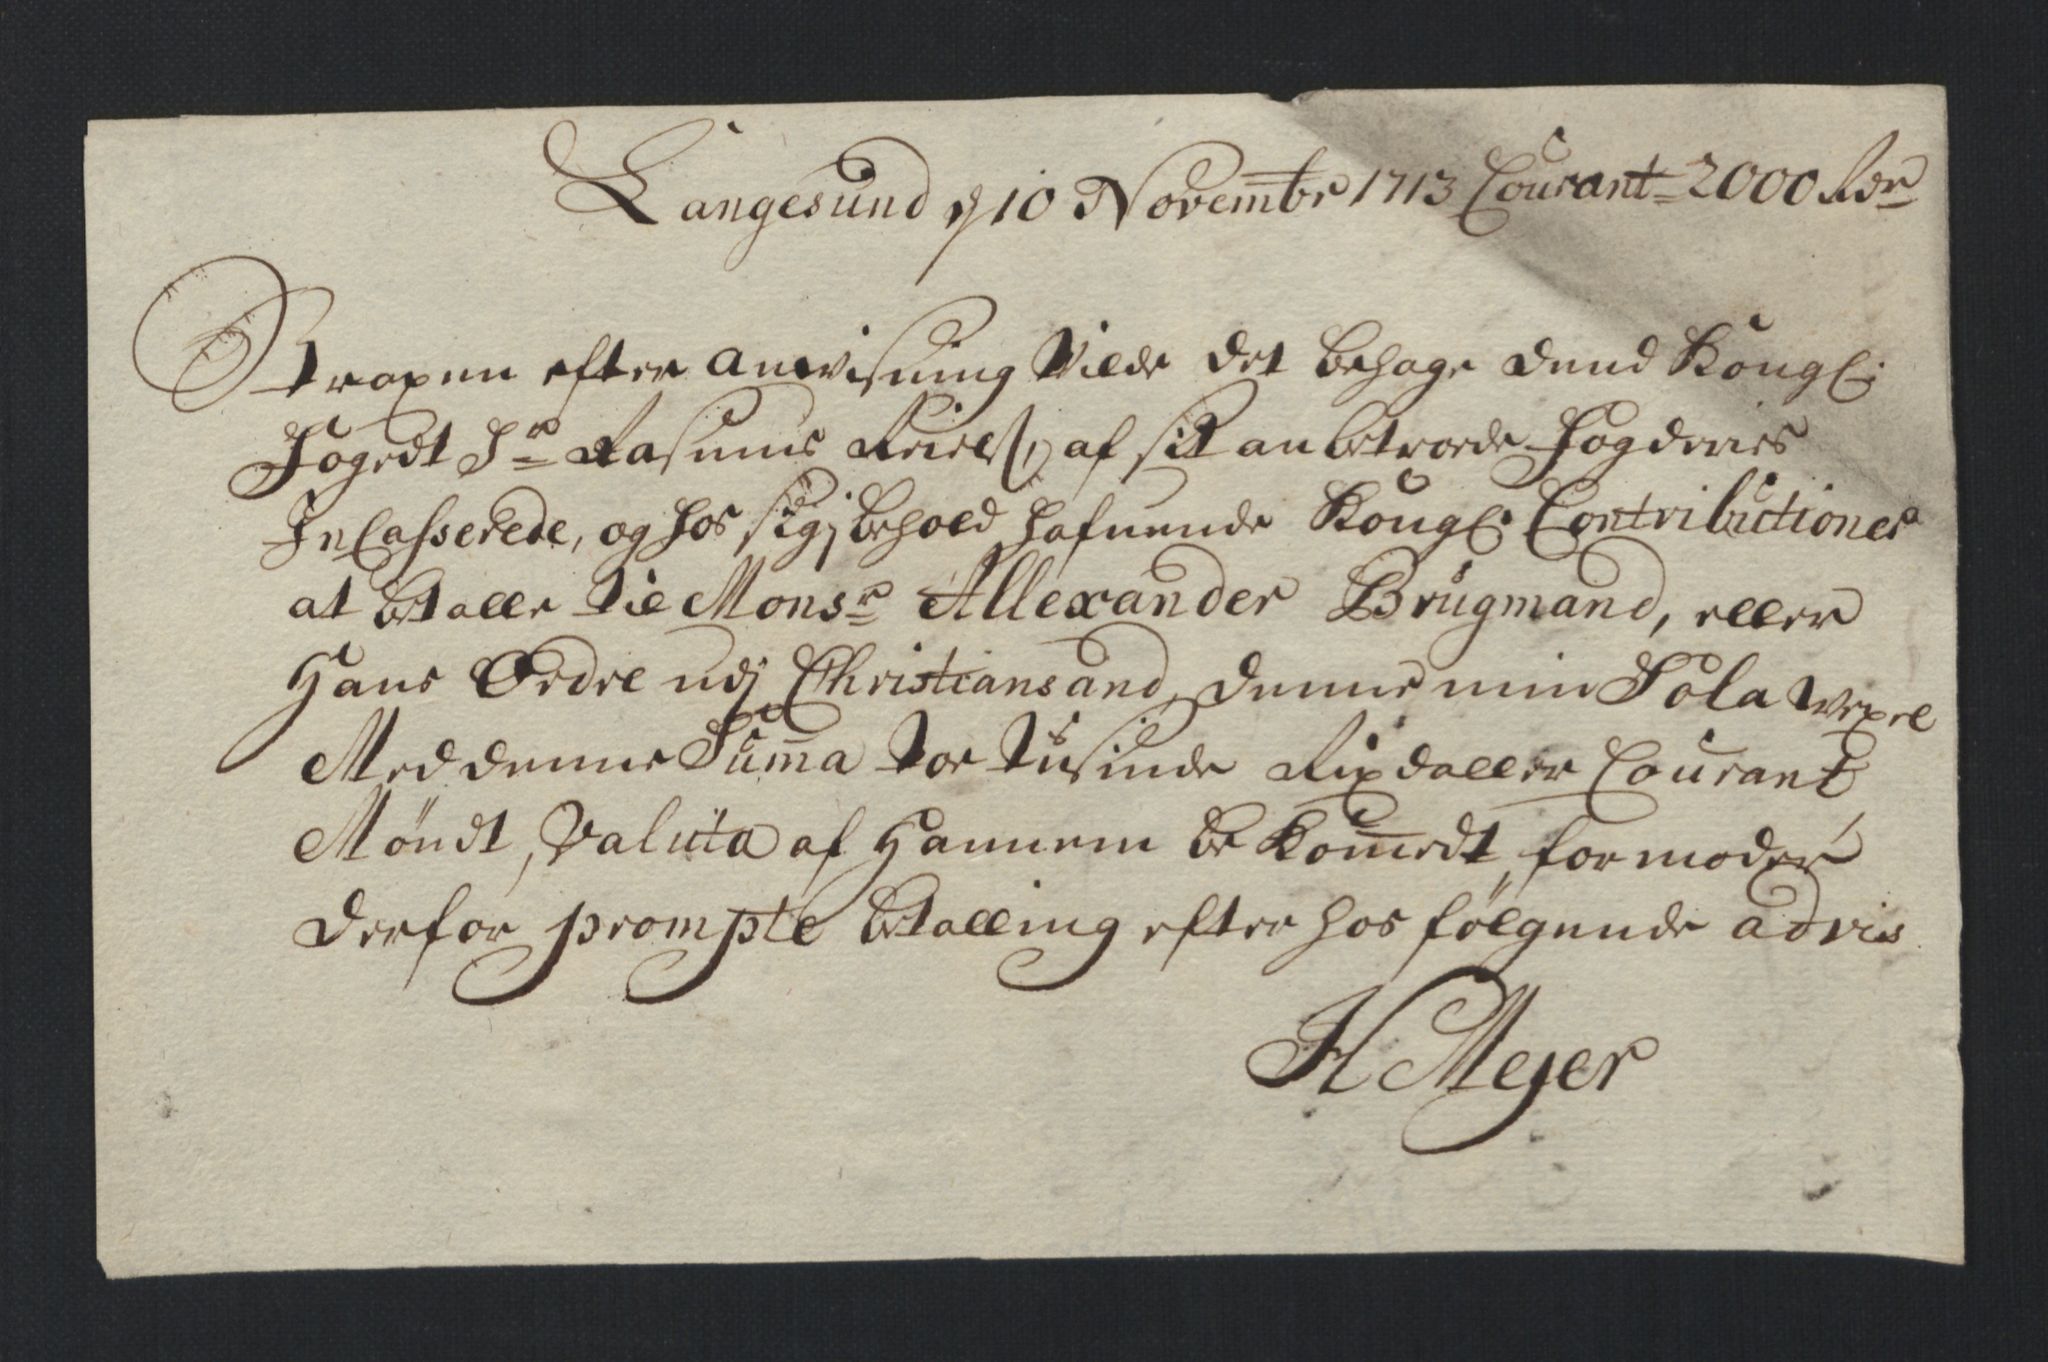 Langesund d 10 Novembr 1713 Courant = 2000 Rdr
Straxen efter anvisning Vilde det behage dend Kongl:
Fogedt Sr Rasmus af sit anbetroede Fogderies
InCasserede, og hos sig j behold hafuende Kongl: Contributioner
at betalle til Monsr Allexander Brugmand, eller
Hans Ordre udj Christiansand, denne min Sola wexel
Med denne Suma toe tusinde Rixdaller Courant
Möndt, Valuta af Hannem bekomedt, formoder
derfor prompte betalling efter hosfölgende advis
H Mejer